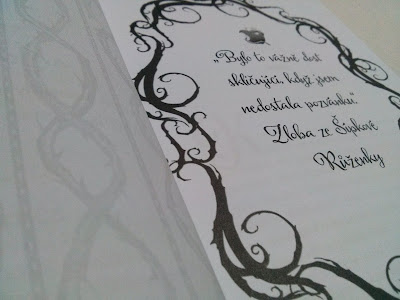 „Bylo to vážně dost
skličující, když jsem
nedostala pozvánku."
Zloba ze Šípkové
Růženky